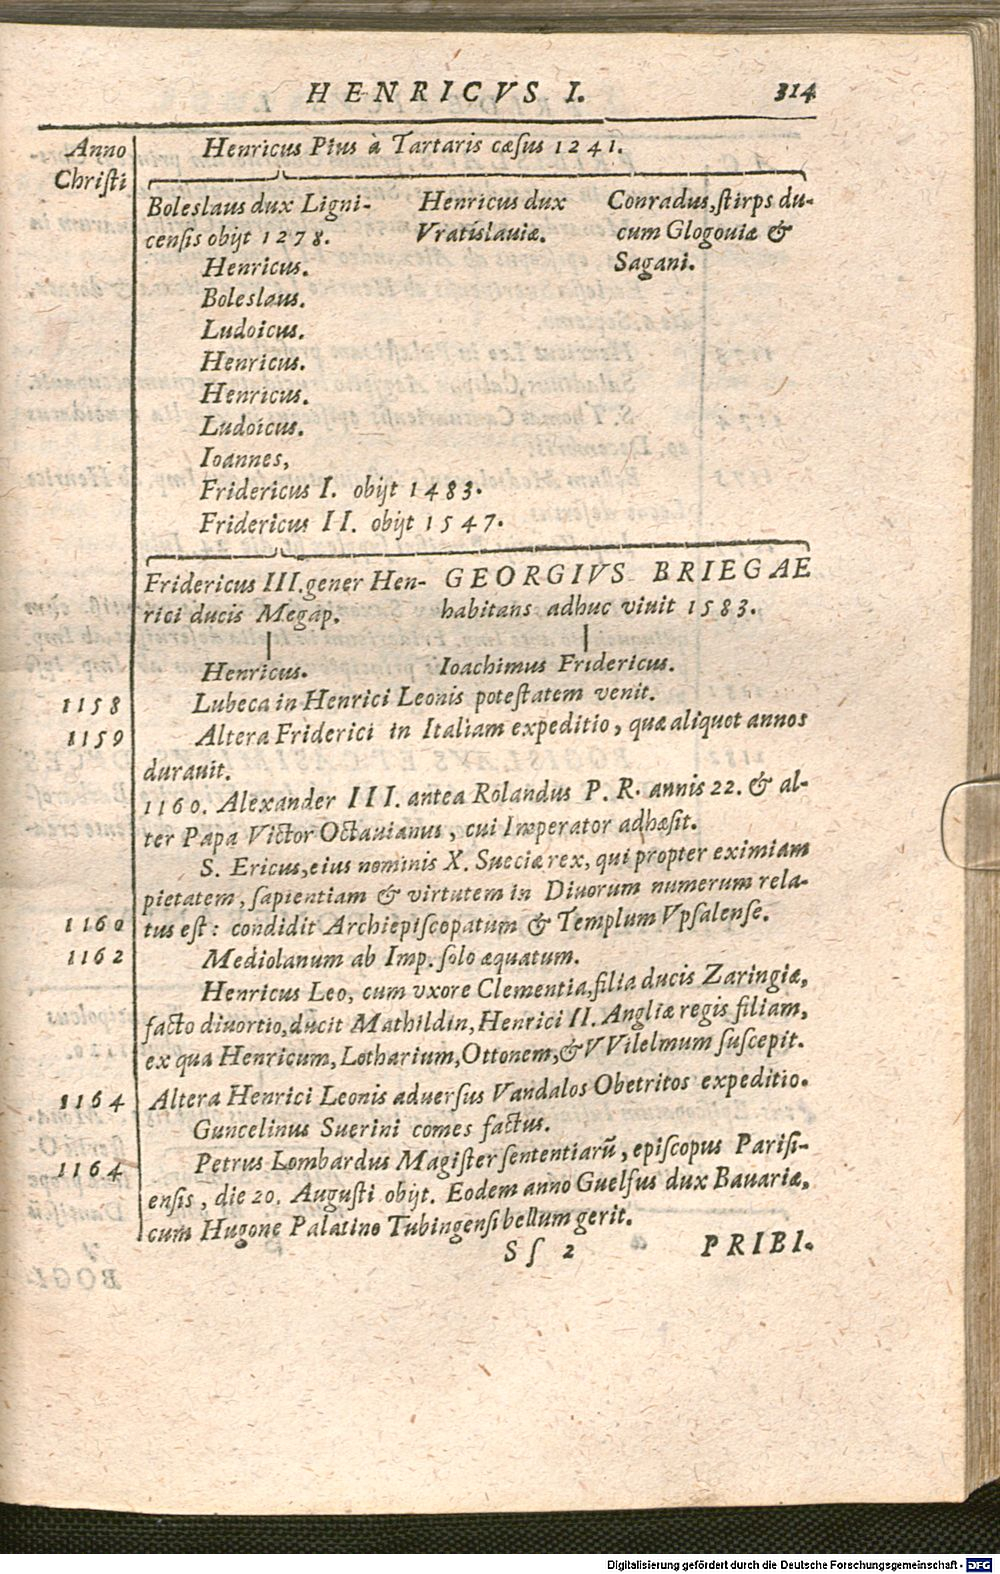 HENRICVS I. 314
Anno
Christi
Henricus Pius à Tartaris cæsus 1241.
Boleslaus dux Ligni-
censis obijt 1278.
Henricus dux
Vratislauiæ.
Conradus, stirps du-
cum Glogouiæ &
Sagani.
Henricus.
Boleslaus.
Ludoicus.
Henricus.
Henricus.
Ludoicus.
Ioannes,
Fridericus I. obijt 1483.
Fridericus II. obijt 1547.
Fridericus III. gener Hen-
rici ducis Megap.
Henricus.
GEORGIVS BRIEGAE
habitans adhuc viuit 1583.
Ioachimus Fridericus.
1158 Lubeca in Henrici Leonis potestatem venit.
1159 Altera Friderici in Italiam expeditio, quæ aliquot annos
durauit.
1160. Alexander III. antea Rolandus P. R. annis 22. & al-
ter Papa Victor Octauianus, cui Imperator adhæsit.
S. Ericus, eius nominis X. Sueciæ rex, qui propter eximiam
pietatem, sapientiam & virtutem in Diuorum numerum rela-
1160 tus est: condidit Archiepiscopatum & Templum Vpsalense.
1162 Mediolanum ab Imp. solo æquatum.
Henricus Leo, cum vxore Clementia, filia ducis Zaringiæ,
facto diuortio, ducit Mathildin, Henrici II. Angliæ regis filiam,
ex qua Henricum, Lotharium, Ottonem, & VVilelmum suscepit.
1164 Altera Henrici Leonis aduersus Vandalos Obetritos expeditio.
Guncelinus Suerini comes factus.
1164 Petrus Lombardus Magister sententiarū, episcopus Parisi-
ensis, die 20. Augusti obijt. Eodem anno Guelfus dux Bauariæ,
cum Hugone Palatino Tubingensi bellum gerit.
Sſ 2 PRIBI.
Digitalisierung gefördert durch die Deutsche Forschungsgemeinschaft - DFG